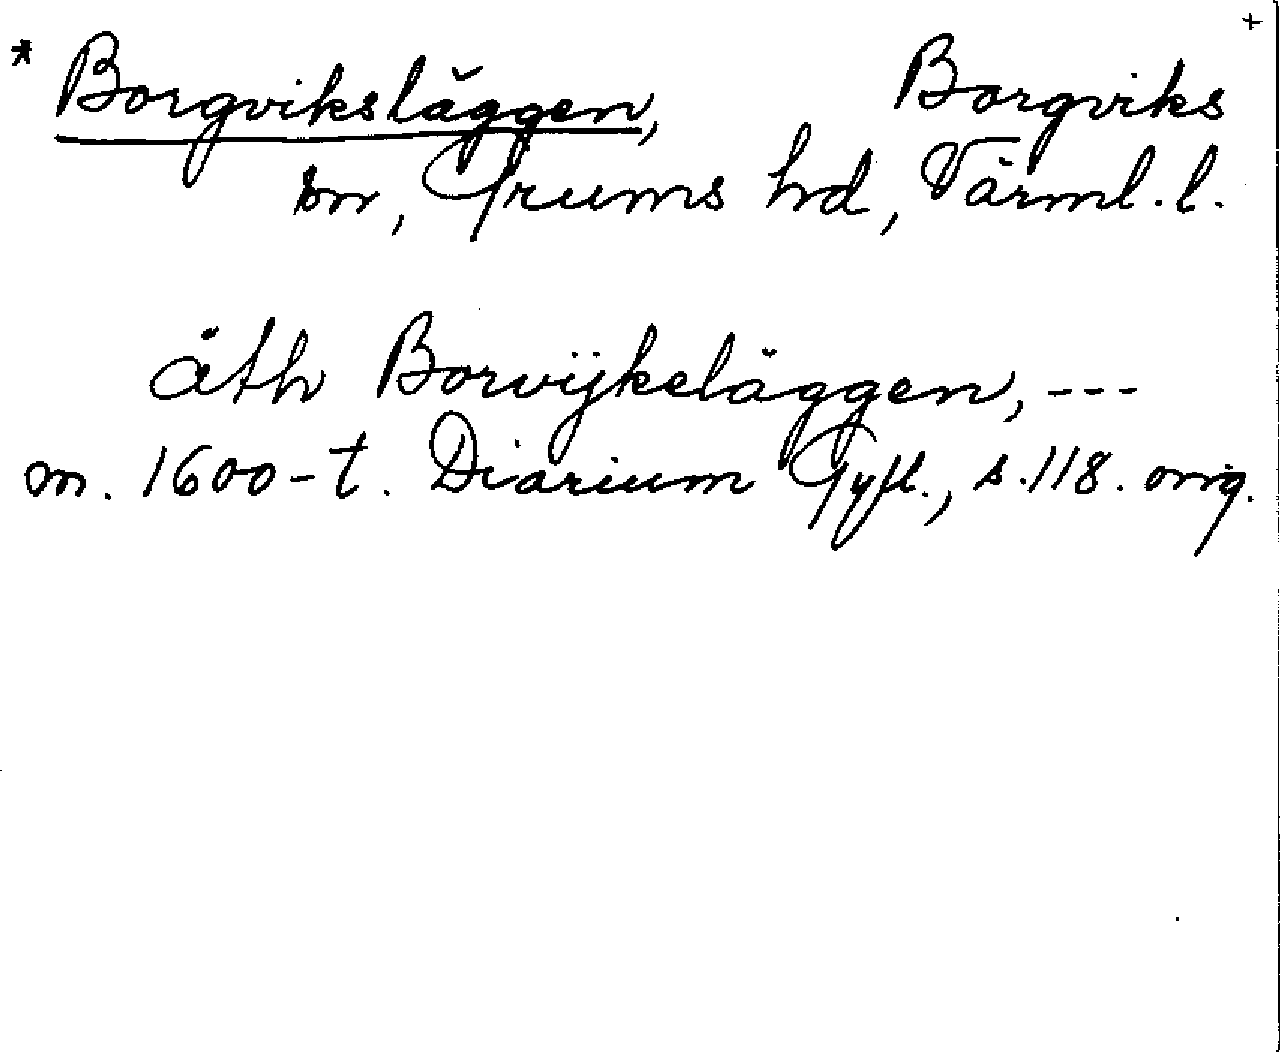 * Borgviksläggen, Borgviks +
sn, Grums hd, Värml. l.
äth Borvijkeläggen, ---
m. 1600-t. Diarium Gyll., s. 118. orig.